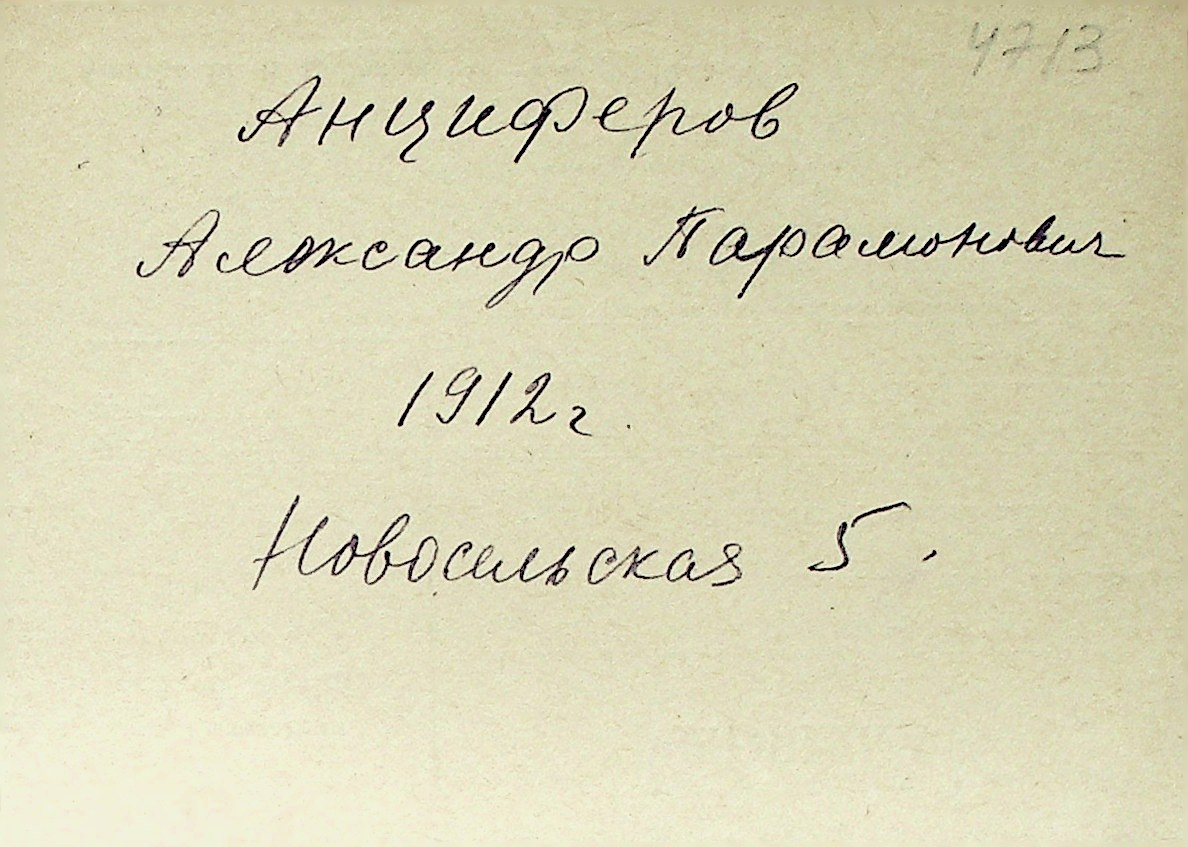 4713
Анциферов
Александр Парамонович
1912 г.
Новосельская 5.